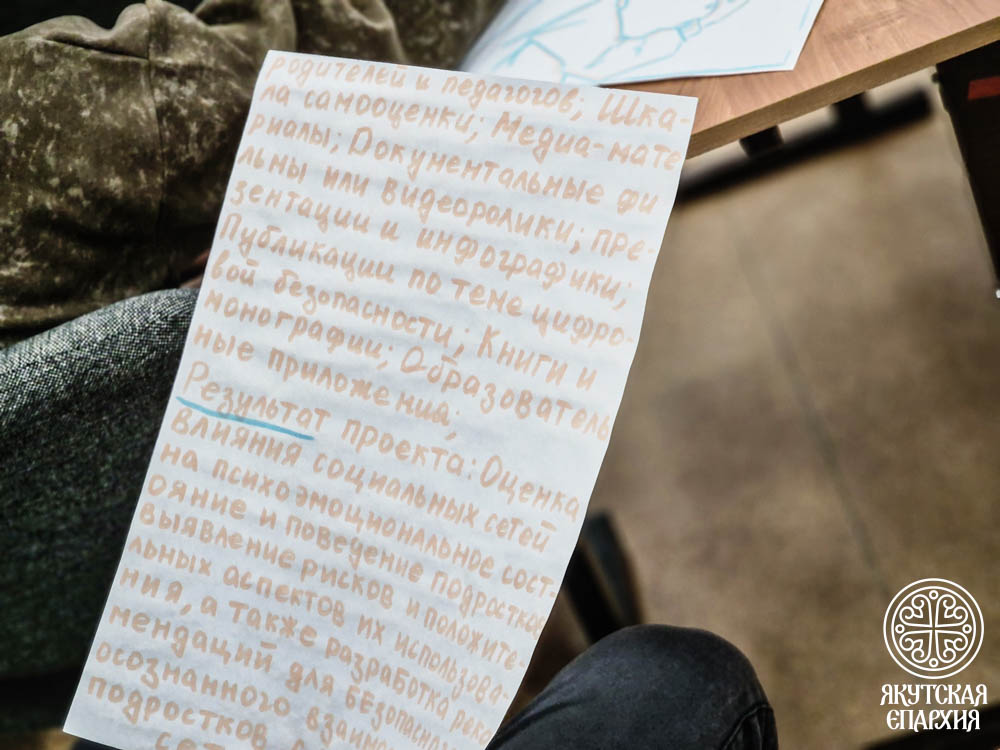 родителей и педагогов; Шка-
ла самооценки; Медиа-мате
риалы; Документальные фи
льмы или видеоролики; пре-
зентации и инфографики;
Публикации по теме цифро-
вой безопасности; Книги и
монографии; Образователь
ные приложения;
Результат проекта: Оценка
влияния социальных сетей
на психоэмоциональное сост-
ояние и поведение подростков
выявление рисков и положите-
льных аспектов их использова-
ния, а также разработка реко
мендаций для безопасного
осознанного
подростков
ЯКУТСКАЯ
ЄПАРХИЯ